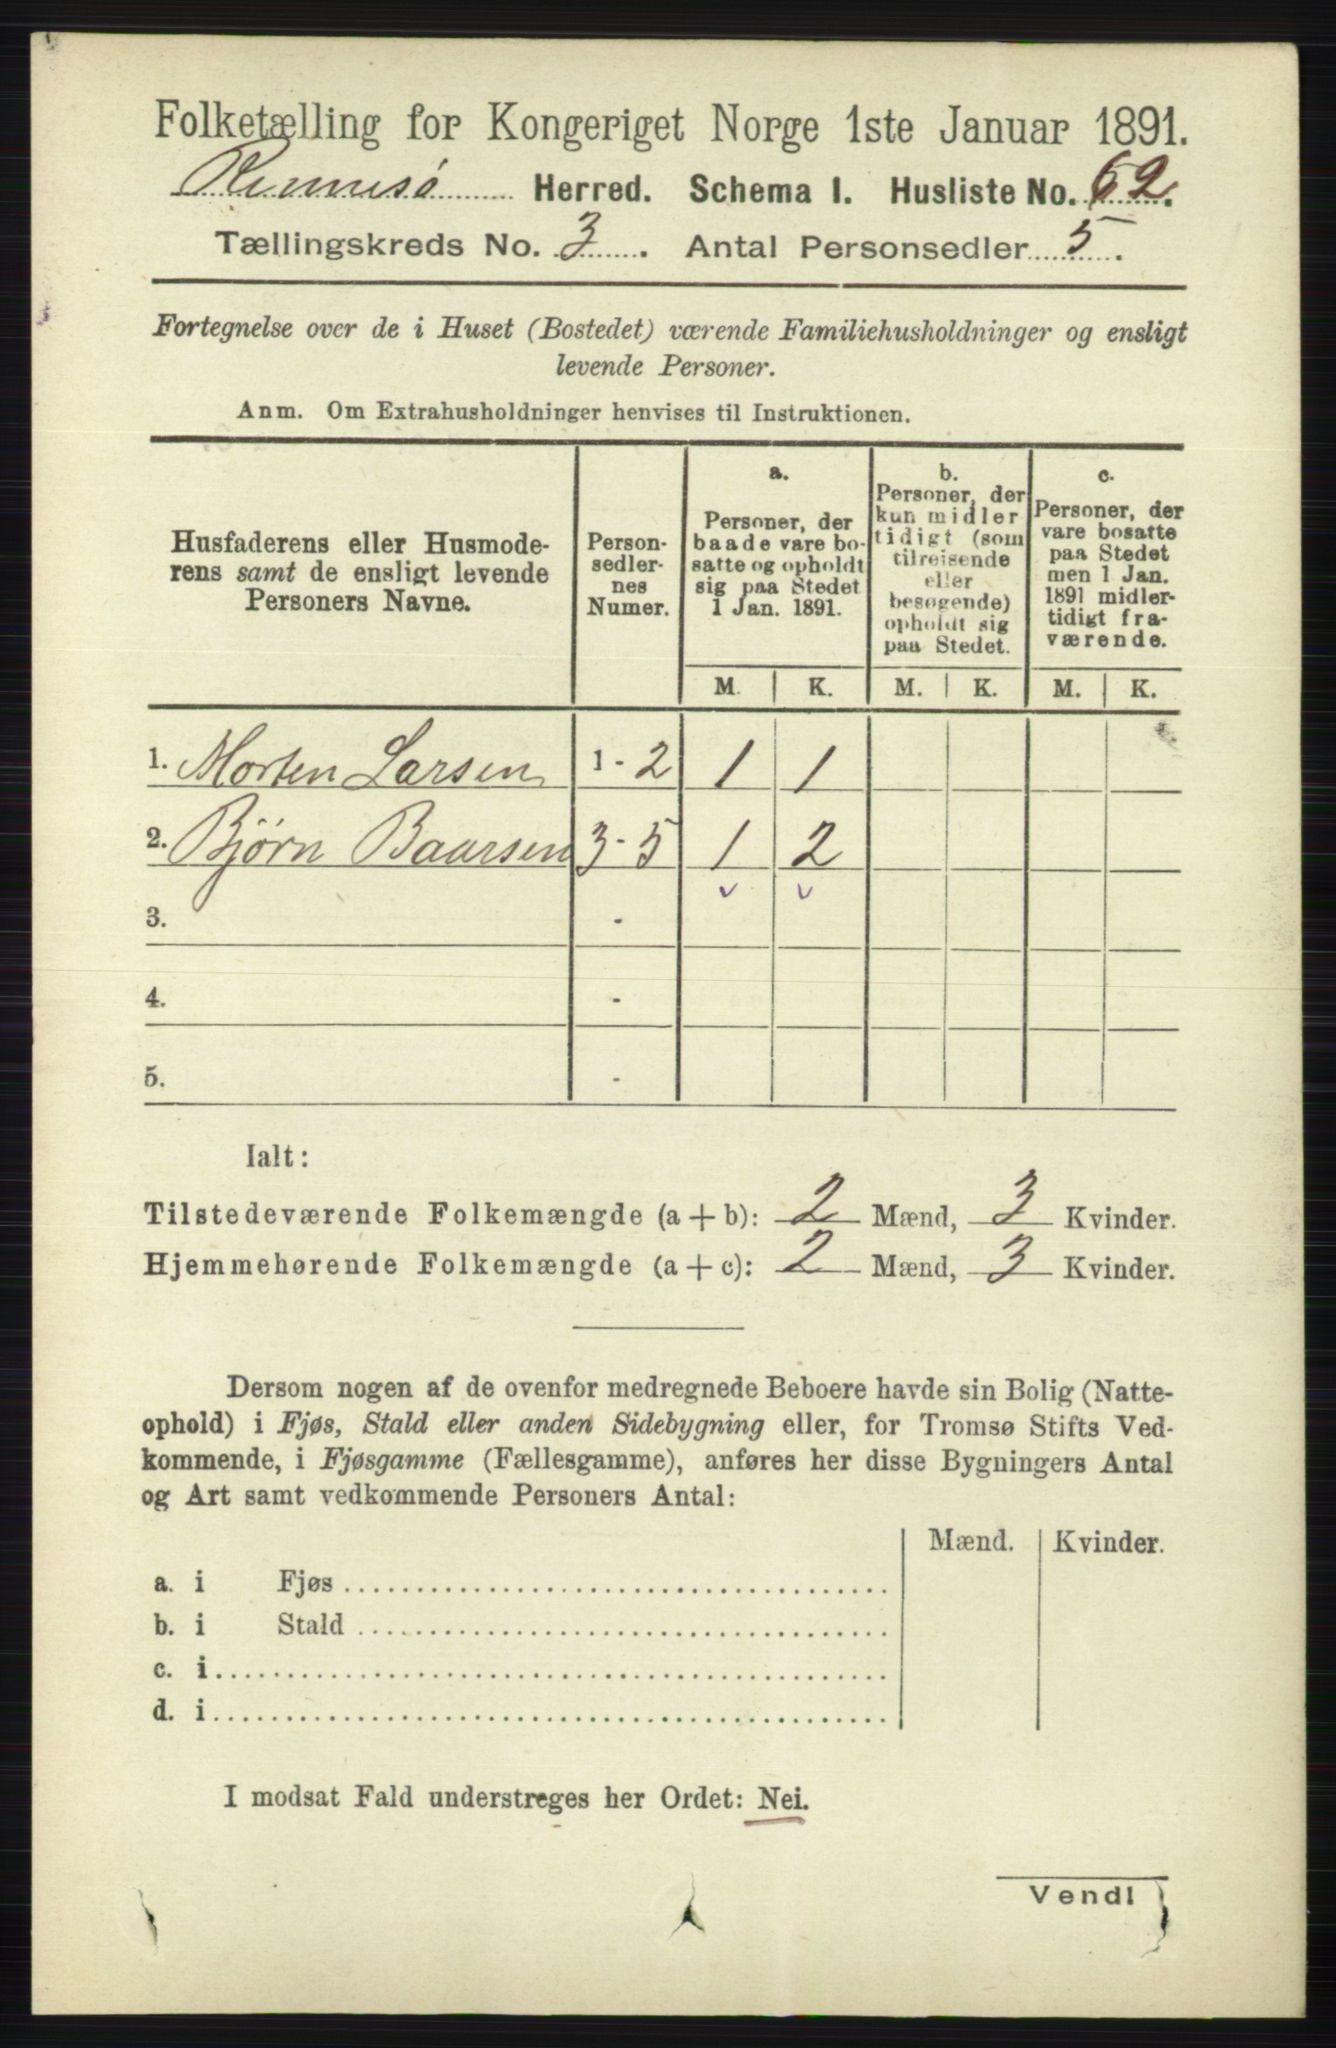 Folketælling for Kongeriget Norge 1ste Januar 1891.
Rennesø Herred. Schema I. Husliste No. 62.
Tællingskreds No. 3. Antal Personsedler 5.
Fortegnelse over de i Huset (Bostedet) værende Familiehusholdninger og ensligt
levende Personer.
Anm. Om Extrahusholdninger henvises til Instruktionen.
Husfaderens eller Husmode-
rens samt de ensligt levende
Personers Navne.
Person-
sedler-
nes
Numer.
a.
Personer, der
baade vare bo-
satte og opholdt
sig paa Stedet
1 Jan. 1891.
b.
Personer, der
kun midler
tidigt (som
tilreisende
eller
besøgende)
opholdt sig
paa Stedet.
c.
Personer, der
vare bosatte
paa Stedet
men 1 Jan.
1891 midler-
tidigt fra-
værende.
M. K. M. K. M. K.
1. Morten Larsen 1-2 1 1
2. Bjørn Baarsen 3-5 1 2
3. -
4. -
5. -
Ialt:
Tilstedeværende Folkemængde (a + b): 2 Mænd, 3 Kvinder.
Hjemmehørende Folkemængde (a + c): 2 Mænd, 3 Kvinder.
Dersom nogen af de ovenfor medregnede Beboere havde sin Bolig (Natte-
ophold) i Fjøs, Stald eller anden Sidebygning eller, for Tromsø Stifts Ved-
kommende, i Fjøsgamme (Fællesgamme), anføres her disse Bygningers Antal
og Art samt vedkommende Personers Antal:
Mænd. Kvinder.
a. i Fjøs
b. i Stald
c. i
d. i
I modsat Fald understreges her Ordet: Nei.
Vend!